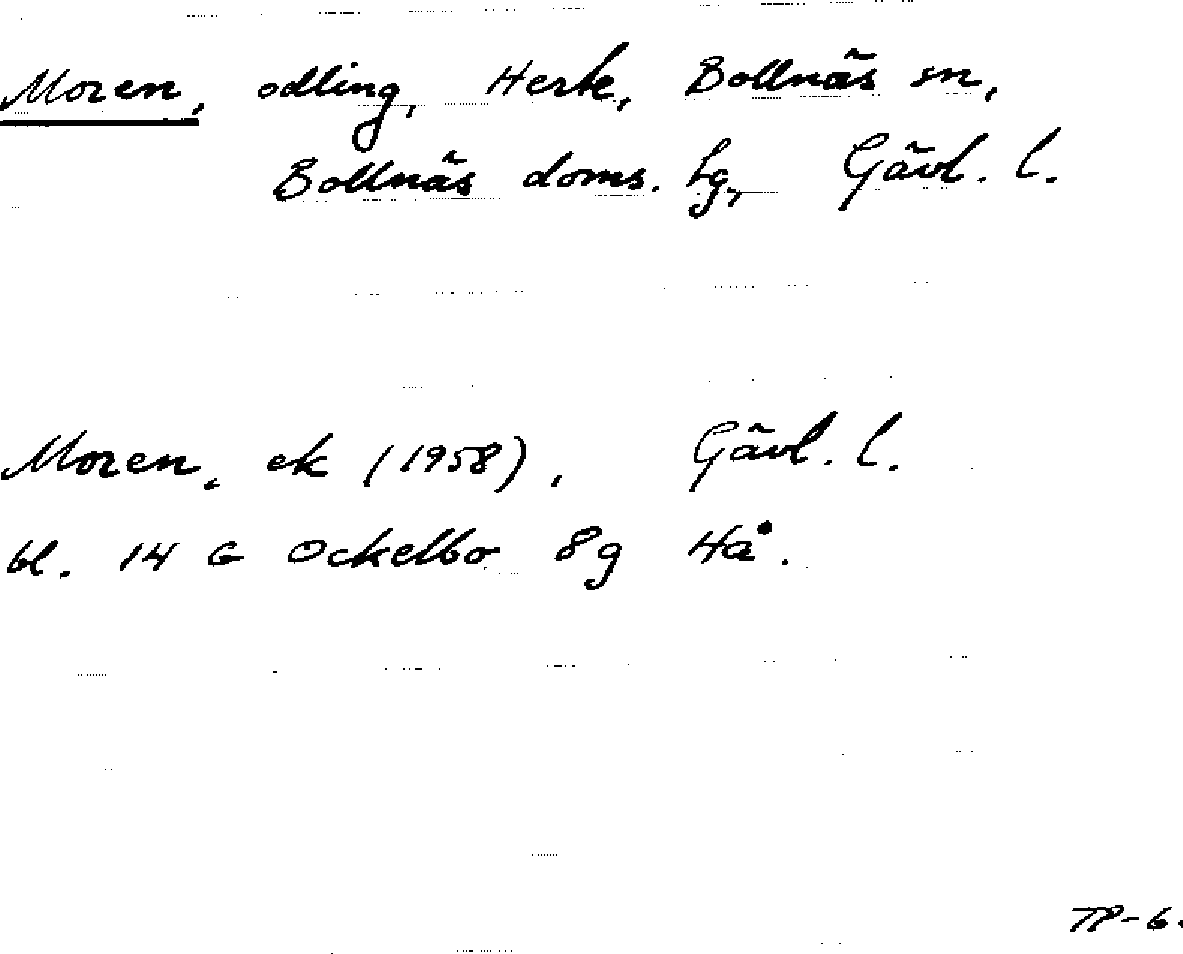 Moren, odling, Herte, Bollnäs sn,
Bollnäs doms. lg, Gävl. l.
Moren, ek (1958), Gävl. l.
bl. 14 G Ockelbo 8g Hå.
TP-6.